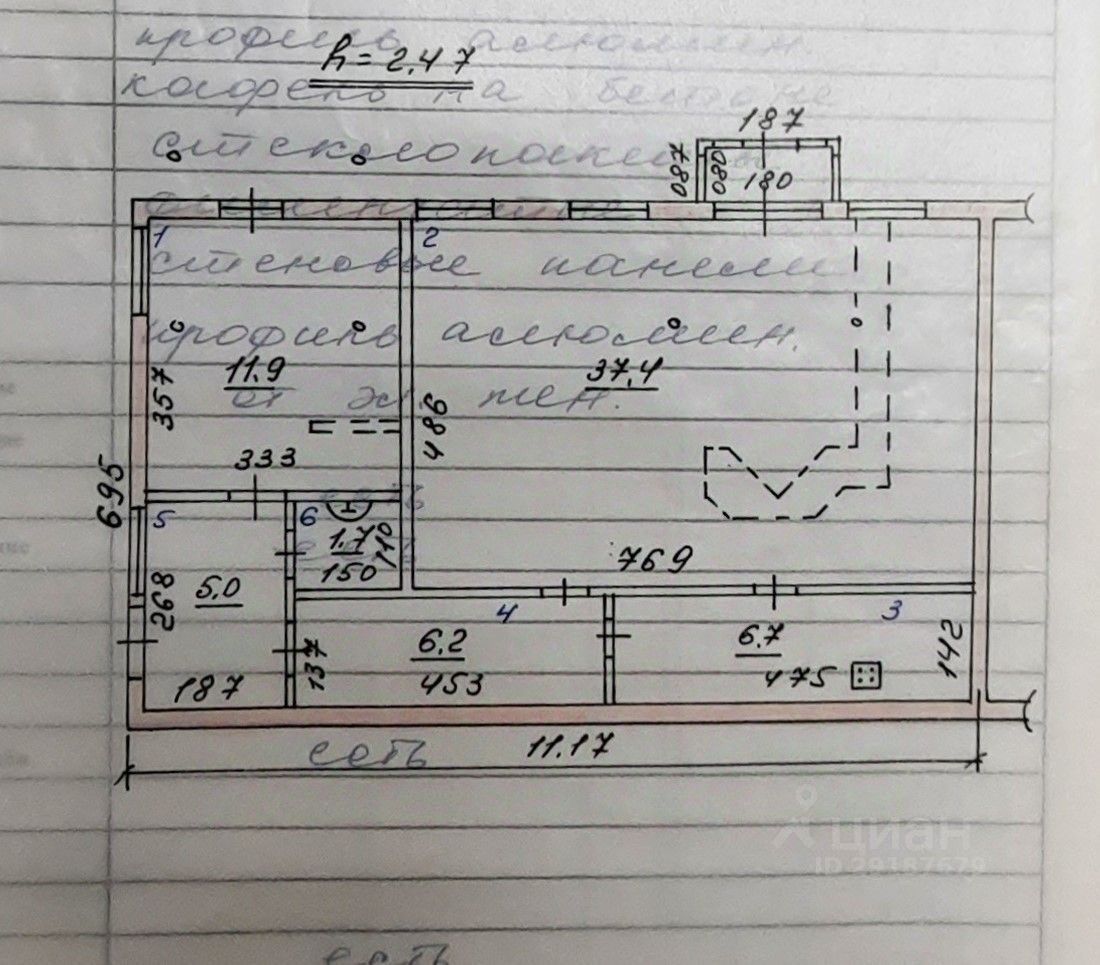 профиль алюмин
h = 2.47
кафель на бетоне
187
стеклопакеты
087 080 180
1 2
стеновые панели
профиль алюмин.
11.9 37.4
357 486
333
695
5 6 есть
1.7 110
150
769
268 5.0
4 3
6.2 6.7
137 142
453 475
187
есть 11.17
циан
ID 29187679
есть